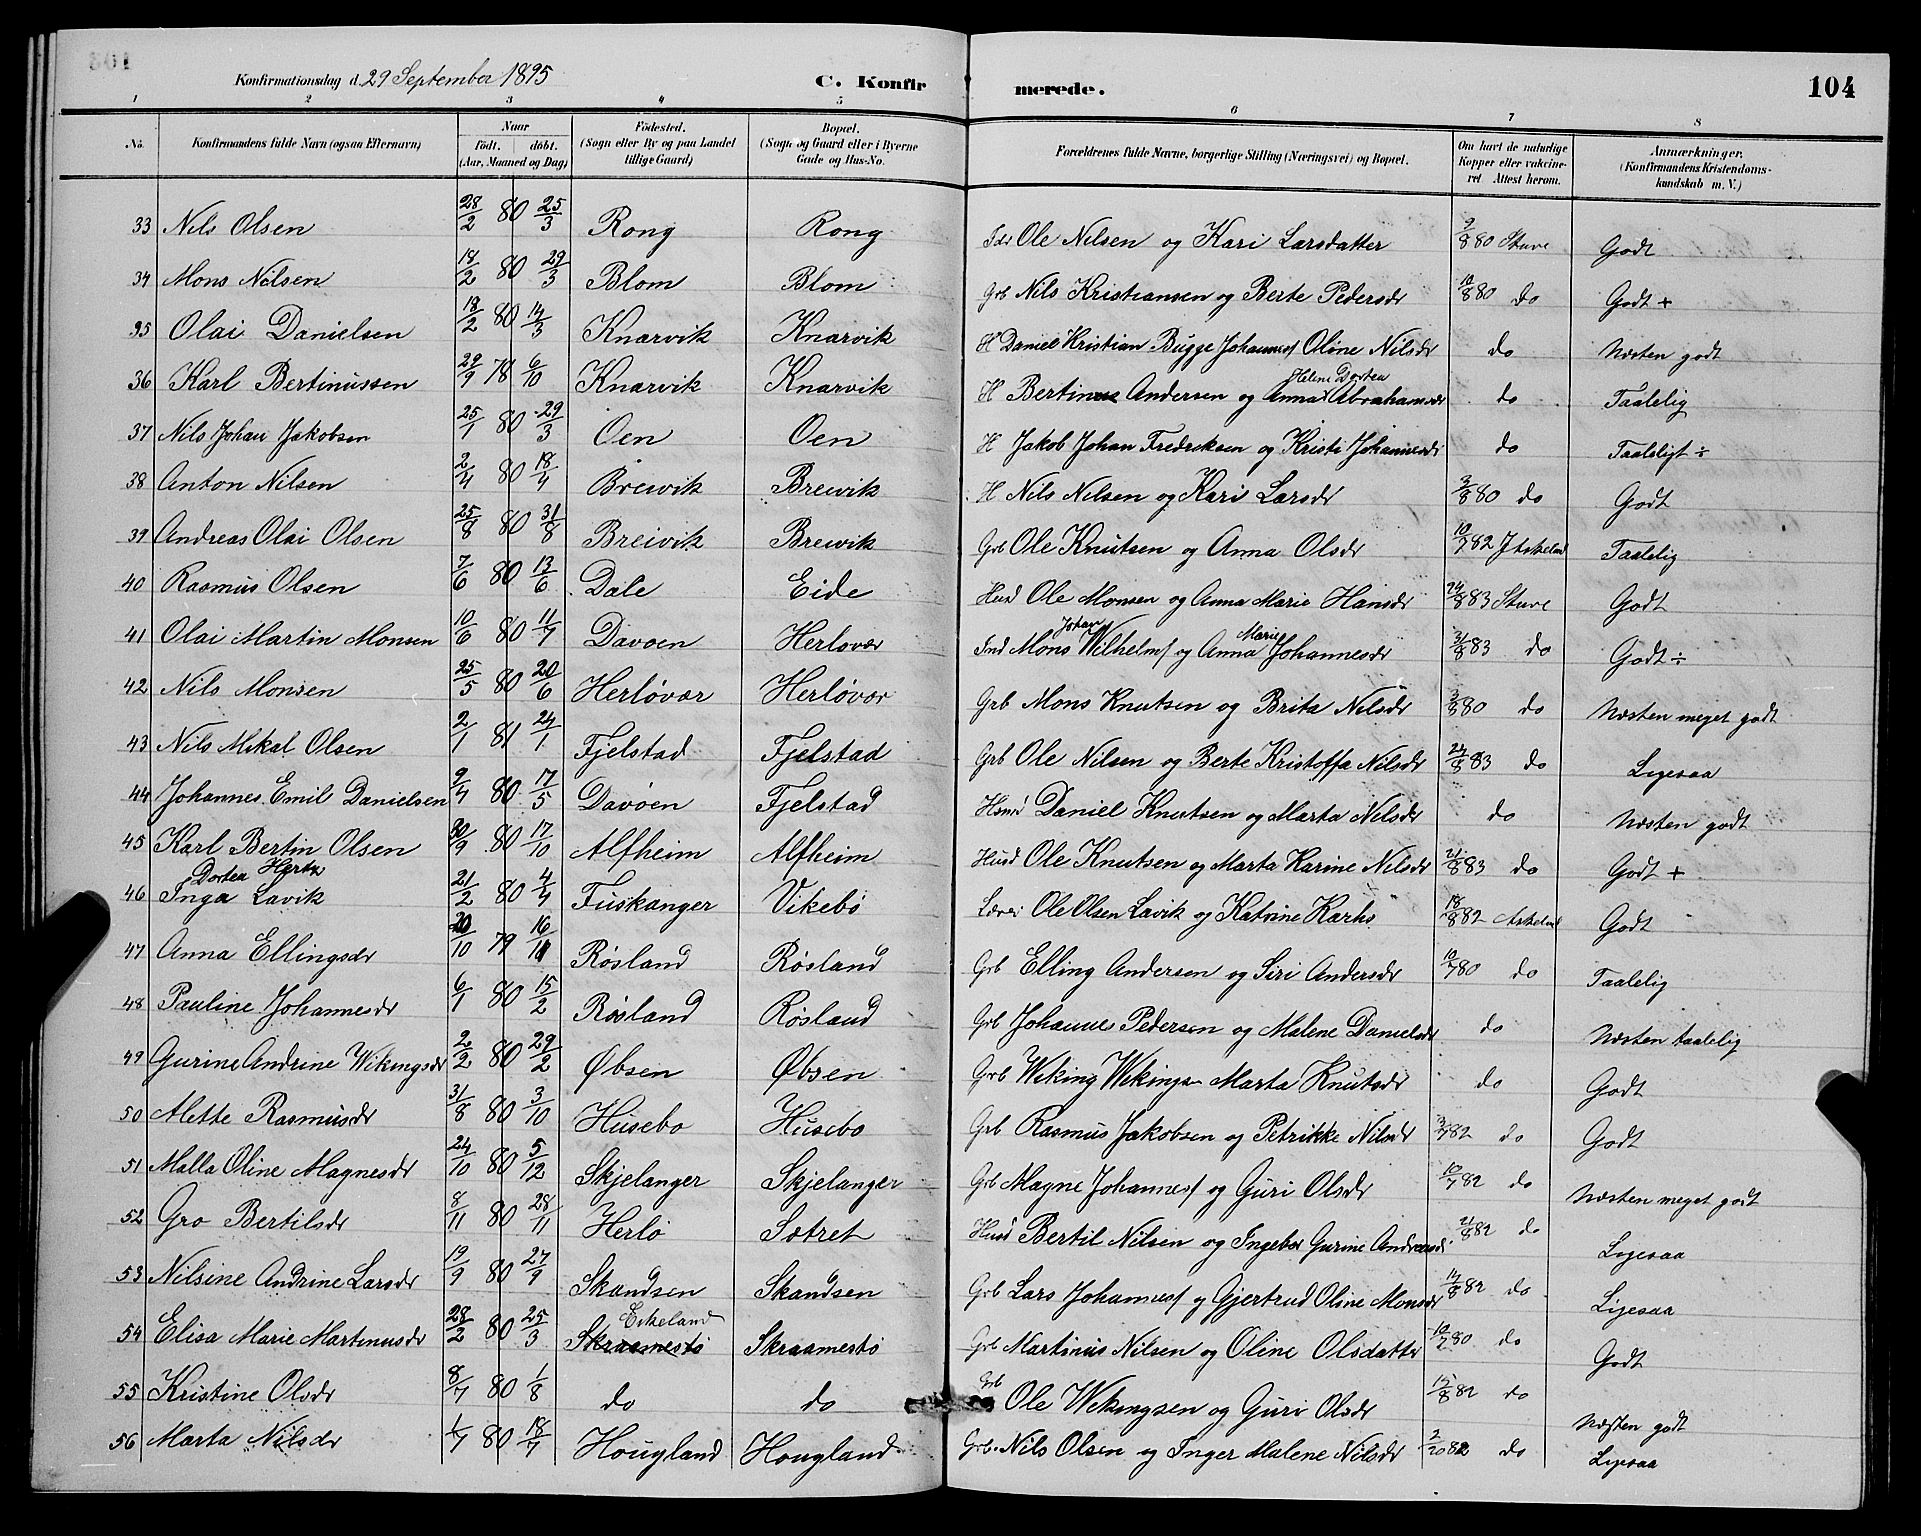 Konfirmationsdag d. 29 September 1895 C. Konfirmerede. 104
1 2 3 4 5 6 7 8
No. Konfirmandens fulde Navn (ogsaa Efternavn) Naar födt. döbt. (Aar, Maaned og Dag) Födested. (Sogn eller By og paa Landet tillige Gaard) Bopæl. (Sogn og Gaard eller i Byerne Gade og Hus-No. Forældrenes fulde Navne, borgerlige Stilling (Næringsvei) og Bopæl. Om havt de naturlige Kopper eller vakcineret Attest herom. Anmærkninger. (Konfirmandens Kristendomskundskab m. V.)
33 Nils Olsen 28/2 80 25/3 Rong Rong Ole Nilsen og Kari Larsdatter 9/8 80 Stuve Godt
34 Mons Nilsen 18/2 80 29/3 Blom Blom Grb Nils Kristiansen og Berte Pedersdr 10/8 80 do Godt +
35 Olai Danielsen 18/2 80 14/3 Knarvik Knarvik H Daniel Kristian Bugge Johannes Oline Nilsdr do Næsten godt
36 Karl Bertinussen 29/9 78 6/10 Knarvik Knarvik H Bertinus Andersen og Anna Helene Dortea Abrahamsdr do Taalelig
37 Nils Johan Jakobsen 25/1 80 29/3 Oen Oen H Jakob Johan Fredriksen og Kristi Johannesdr do Taaleligt ÷
38 Anton Nilsen 2/4 80 18/4 Breivik Breivik H Nils Nilsen og Kari Larsdr 3/8 80 do Godt
39 Andreas Olai Olsen 25/8 80 31/8 Breivik Breivik Grb Ole Knutsen og Anna Olsdr 10/7 82 Taalelig
40 Rasmus Olsen 7/6 80 13/6 Dale Eide Husd Ole Monsen og Anna Marie Hansdr 24/8 83 Stuve Godt
41 Olai Martin Monsen 10/6 80 11/7 Davøen Herløvær Ind Mons Johan Wilhelms og Anna Marie Johannesdr 31/8 83 do Godt ÷
42 Nils Monsen 25/5 80 20/6 Herløvær Herløvær Grb Mons Knutsen og Brita Nilsdr 3/8 80 do Næsten meget godt
43 Nils Mikal Olsen 2/1 81 24/1 Fjelstad Fjelstad Grb Ole Nilsen og Berte Kristoffa Nilsdr 24/8 83 do Ligesaa
44 Johannes Emil Danielsen 9/4 80 17/5 Davøen Fjelstad Husd Daniel Knutsen og Marta Nilsdr do Næsten godt
45 Karl Bertin Olsen 30/9 80 17/10 Alfheim Alfheim Husd Ole Knutsen og Marta Karine Nilsdr 24/8 83 do Godt +
46 Inga Dortea Herta Lavik 21/2 80 4/4 Fuskanger Vikebø Lærer Ole Olsen Lavik og Katrine Karhs 18/8 82 Askeland Godt
47 Anna Ellingsdr 20/10 79 16/11 Røsland Røsland Grb Elling Andersen og Siri Andersdr 10/7 80 do Taalelig
48 Pauline Johannesdr 6/1 80 15/2 Røsland Røsland Grb Johannes Pedersen og Malene Danielsdr do Næsten taalelig
49 Gurine Andrine Wikingsdr 2/2 80 29/2 Øbsen Øbsen Grb Wiking Wikingsen Marta Knutsdr do Godt
50 Mette Rasmusdr 31/8 80 3/10 Husebø Husebø Grb Rasmus Jakobsen og Petrikke Nilsdr 82 do Godt
51 Malla Oline Magnesdr 24/10 80 5/12 Skjelanger Skjelanger Grb Magne Johannes og Guri Olsdr 10/7 82 do Næsten meget godt
52 Gro Bertilsdr 8/11 80 28/11 Herlø Sætret Husd Bertil Nilsen og Ingebor Gurine Andreasdr 21/8 82 do Ligesaa
53 Nilsine Andrine Larsdr 19/9 80 27/9 Skandsen Skandsen Grb Lars Johannes og Gjertrud Oline Monsdr 14/8 82 do Ligesaa
54 Elisa Marie Martinusdr 28/2 80 25/3 Skraamestø Eikeland Skraamestø Grb Martinus Nilsen og Oline Olsdatter 10/7 80 do Godt
55 Kristine Olsdr 8/7 80 1/8 do do Grb Ole Wikingsen og Guri Olsdr 15/8 82 do Næsten godt
56 Marta Nilsdr 1/7 80 18/7 Hougland Hougland Grb. Nils Olsen og Inger Malene Nilsdr 2/10 82 do Ligesaa